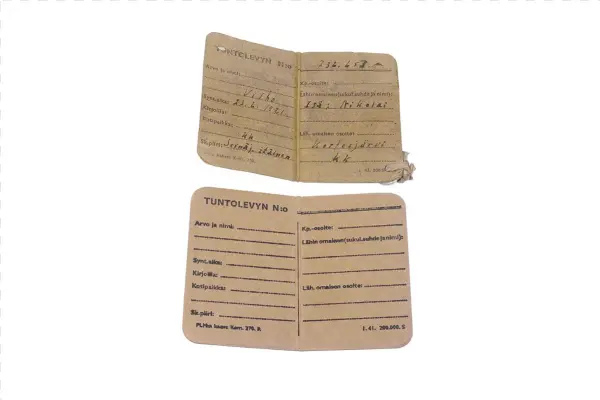 TUNTOLEVYN N:o
Arvo ja nimi:
Veikko
Synt.aika:
Kirjoilla:
Kotipaikka:
kk
Sk.piiri: Seinäj. itäinen
Kp.-osoite:
Lähin omainen (sukul.suhde ja nimi):
isä: Nikolai
Läh. omaisen osoite:
Kortesjärvi
kk
TUNTOLEVYN N:o
Arvo ja nimi:
Synt.aika:
Kirjoilla:
Kotipaikka:
Sk.piiri:
PLMsn kaava: Kam. 276. R
Kp.-osoite:
Lähin omainen (sukul.suhde ja nimi):
Läh. omaisen osoite:
1. 41. 200.000. S